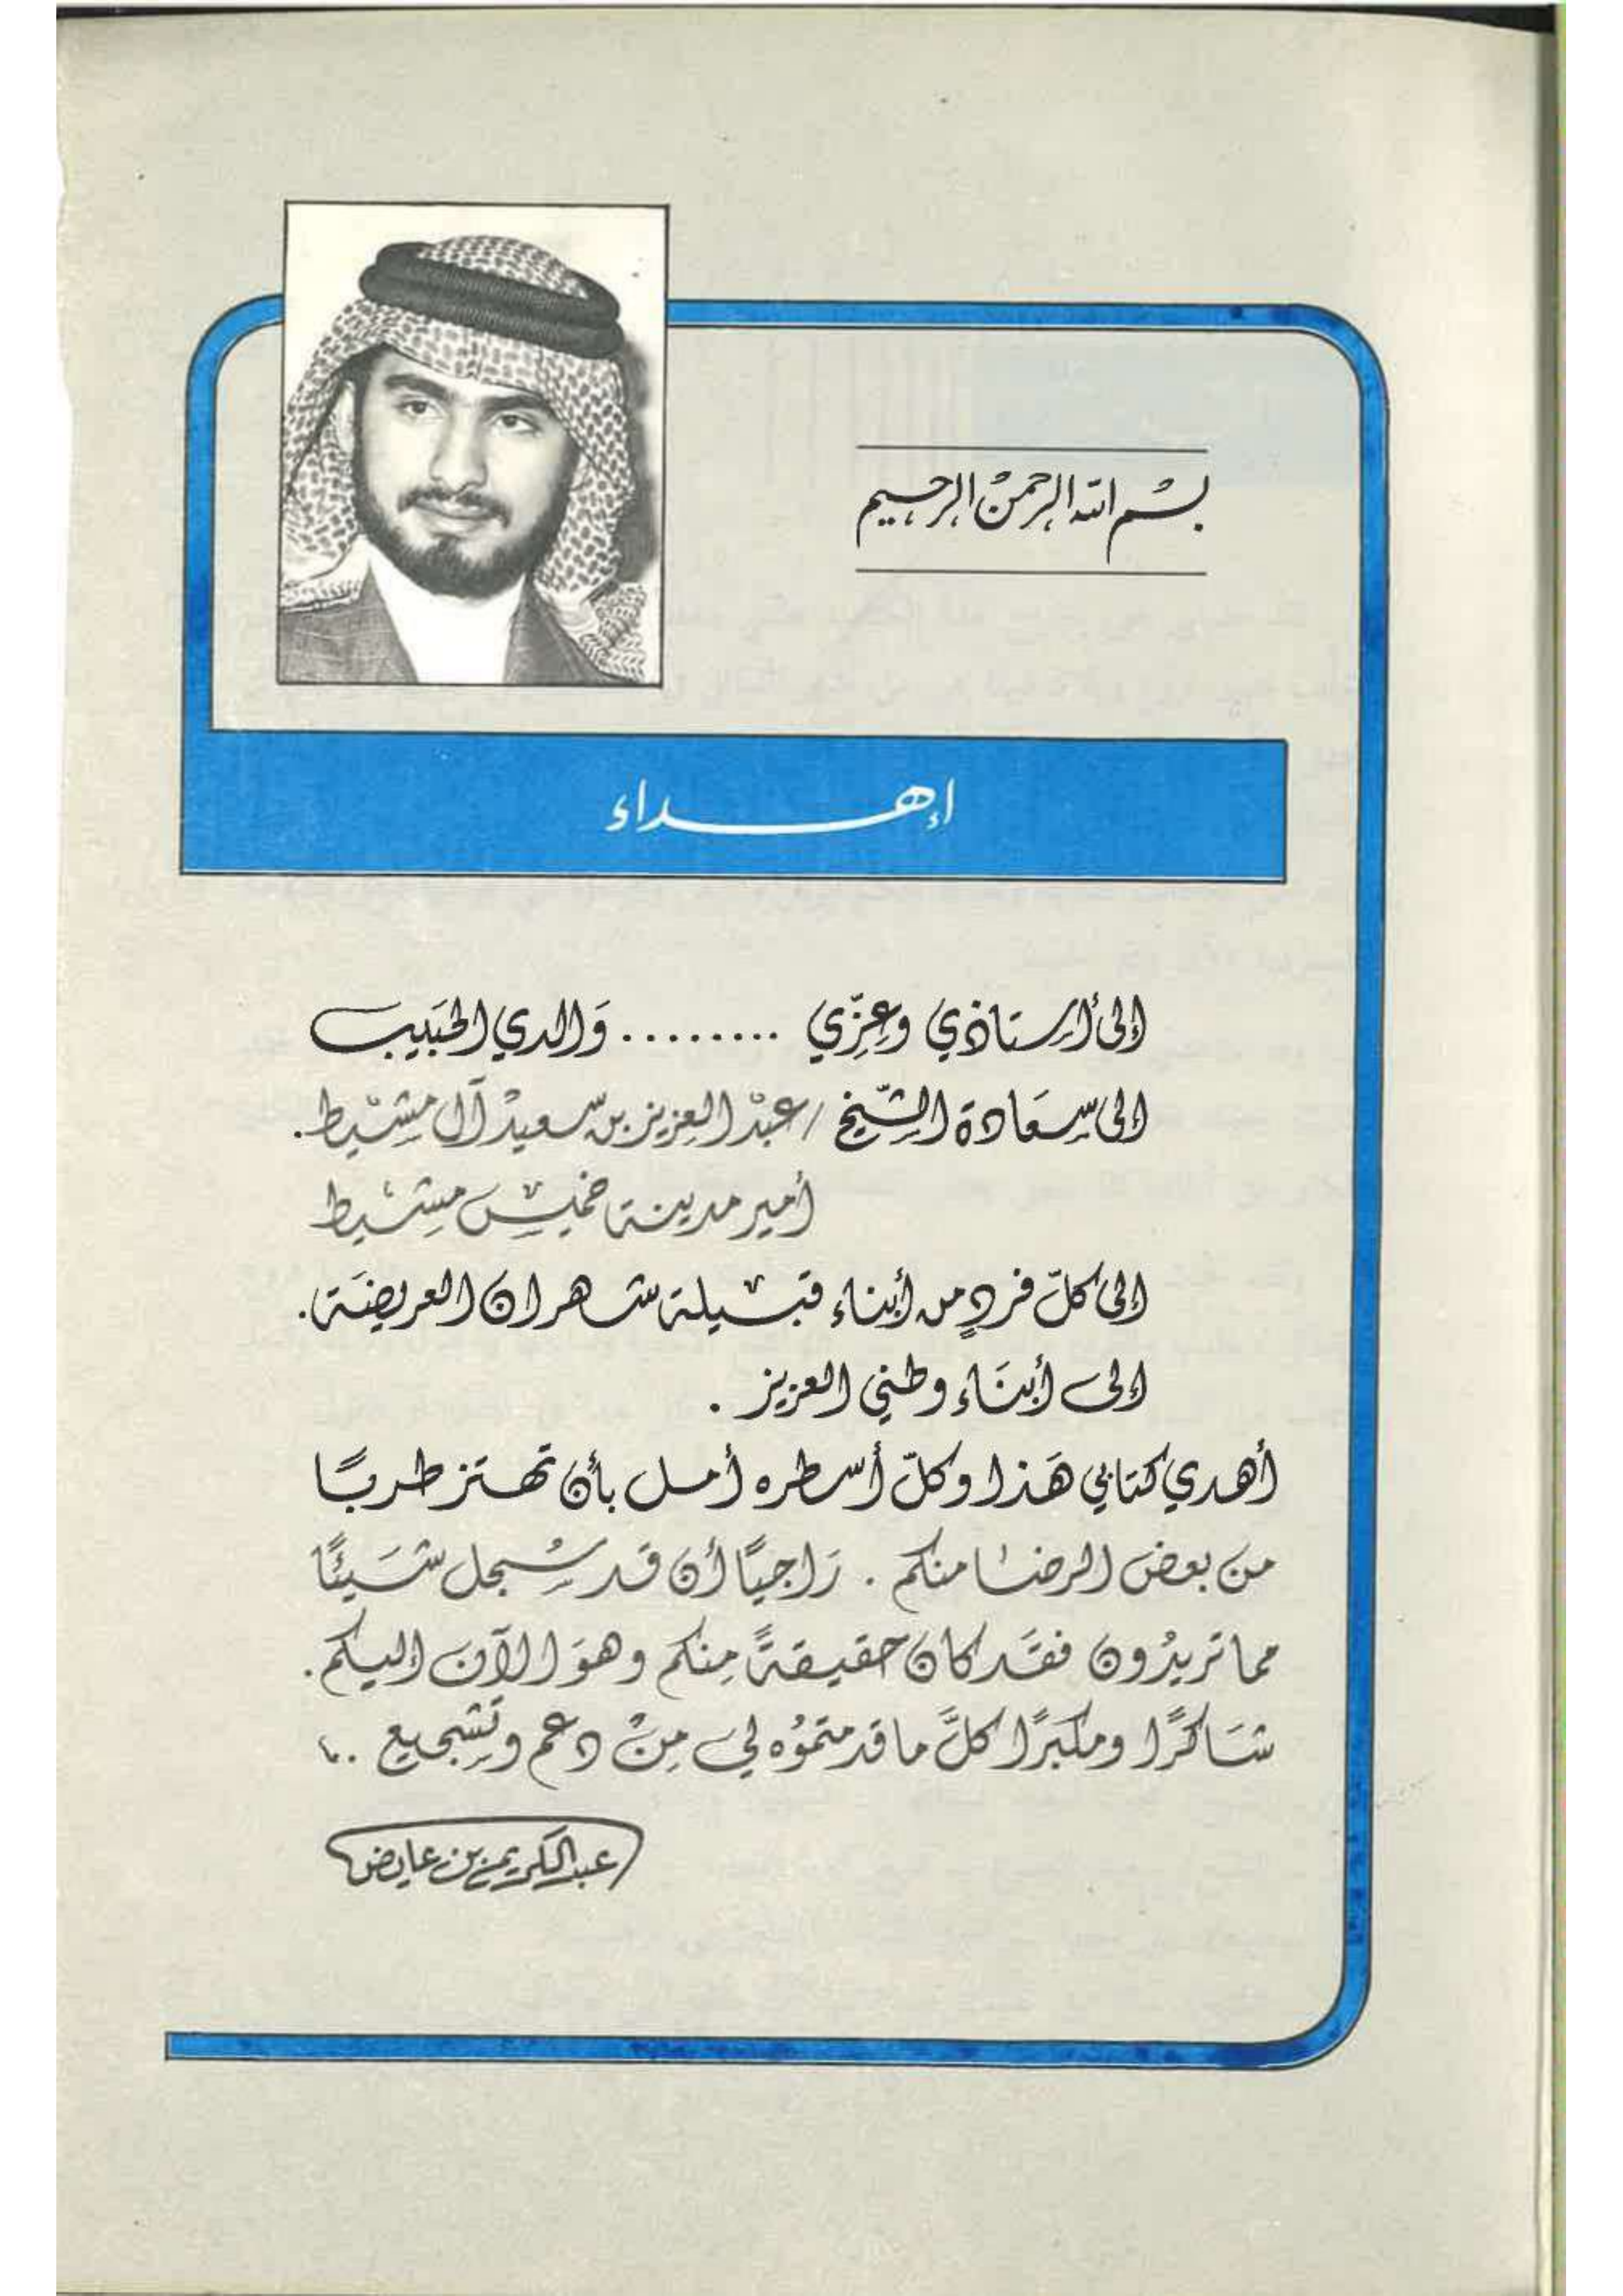 بسْم الله الرحمنْ الرحيم
إهداء
إلى أستاذي وعِزّي ......... وَالدي الحَبَيب
إلى سِعَادة الشّيخ / عبْد العِزيز بن سعيدْ آل مشَيْط .
أمير مدينة خميْس مشَيط
إلى كلّ فردٍ من أبناء قبيلة شهران العريضَة .
إلى أبنَاء وطني العزيز .
أهدي كتابي هَذا وكلّ أسطره أمل بأن تهتز طربًا
من بعض الرضا منكم . رَاجيًا أن قد سُجل شَيئًا
مما تريدُون فقَد كان حقيقةً مِنكم وهوَ الآن إليكم .
شَاكرًا ومكبَرًا كلَّ ما قدمتموُه لي مِنْ دعم وتشجيع ..،
عبدالكريم بن عايض